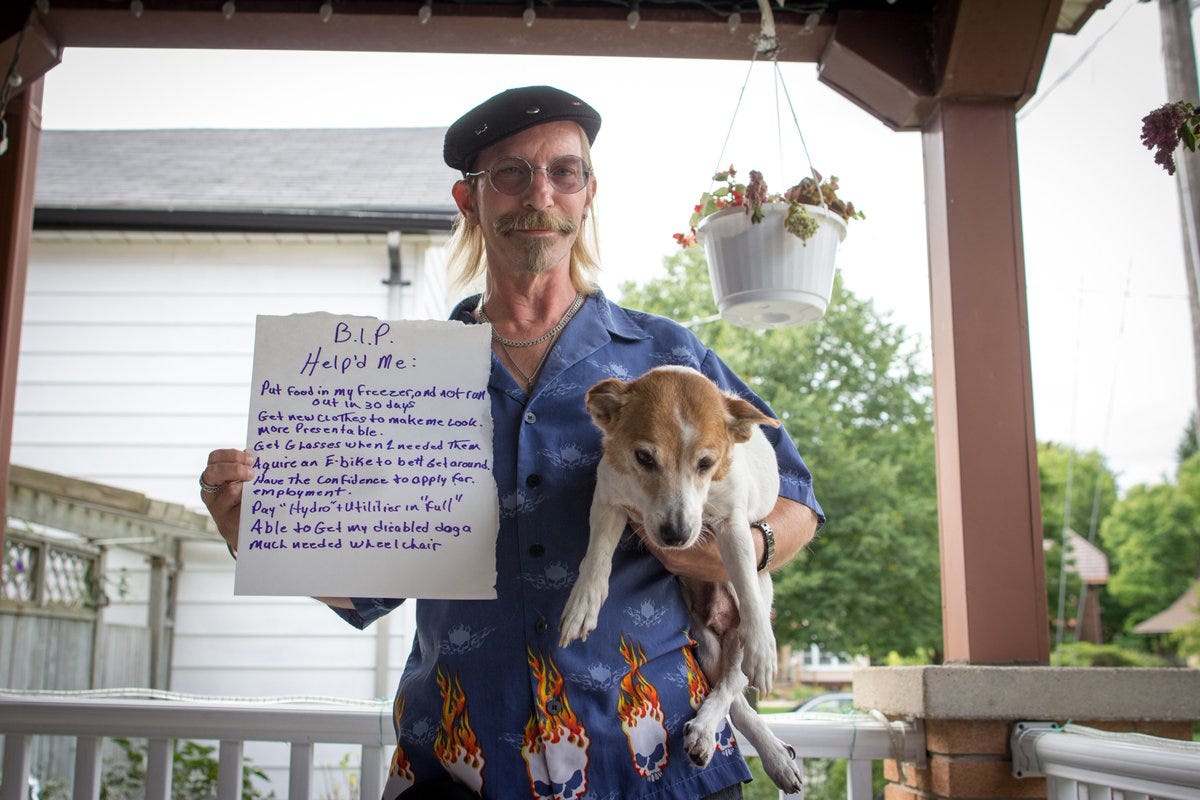 B.I.P.
Help'd Me:
Put Food in my Freezer, and not run
out in 30 days
Get new clothes to make me Look.
more Presentable.
Get Glasses when I needed Them
Aquire an E-bike to bett Get around.
Have The Confidence to apply for.
employment.
Pay "Hydro" + Utilities in "Full"
Able to Get my disabled dog a
much needed wheelchair